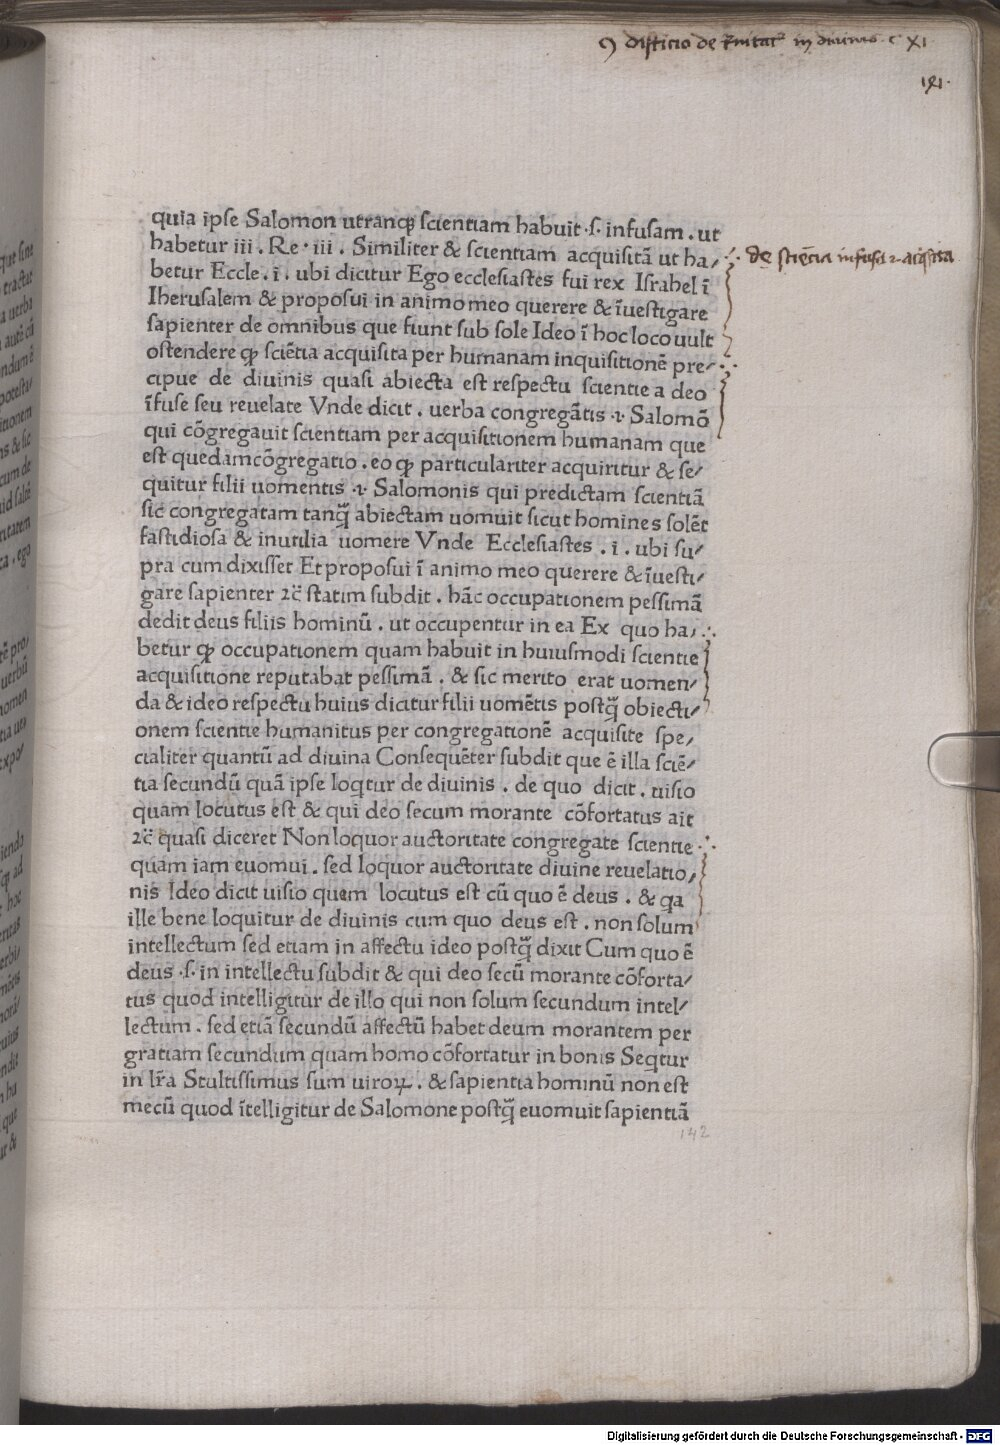 ꝯ disticio de t̃nitat᷒ in diuinis c XI
191.
quia ipse Salomon utranqꝫ scientiam habuit ·s· infusam . ut
habetur iii . Re · iii . Similiter & scientiam acquisitã ut ha/
betur Eccle . i . ubi dicitur Ego ecclesiastes fui rex Israhel ĩ
Iherusalem & proposui in animo meo querere & ĩuestigare
sapienter de omnibus que fiunt sub sole Ideo ĩ hoc loco uult
ostendere ꝙ sciẽtia acquisita per humanam inquisitionẽ pre/
cipue de diuinis quasi abiecta est respectu scientie a deo
ĩfuse seu reuelate Vnde dicit . uerba congregãtis ·i· Salomõ
qui cõgregauit scientiam per acquisitionem humanam que
est quedam cõgregatio . eo ꝙ particulariter acquiritur & se/
quitur filii uomentis ·i· Salomonis qui predictam scientiã
sic congregatam tanq̃ abiectam uomuit sicut homines solẽt
fastidiosa & inutilia uomere Vnde Ecclesiastes . i . ubi su/
pra cum dixisset Et proposui ĩ animo meo querere & ĩuesti/
gare sapienter ⁊c̃ statim subdit . hãc occupationem pessimã
dedit deus filiis hominũ . ut occupentur in ea Ex quo ha/
betur ꝙ occupationem quam habuit in huiusmodi scientie
acquisitione reputabat pessimã . & sic merito erat uomen/
da & ideo respectu huius dicitur filii uomẽtis postq̃ obiecti/
onem scientie humanitus per congregationẽ acquisite spe/
cialiter quantũ ad diuina Consequẽter subdit que ẽ illa sciẽ/
tia secundũ quã ipse loqtur de diuinis . de quo dicit . uisio
quam locutus est & qui deo secum morante cõfortatus ait
⁊c̃ quasi diceret Non loquor auctoritate congregate scientie
quam iam euomui . sed loquor auctoritate diuine reuelatio/
nis Ideo dicit uisio quem locutus est cũ quo ẽ deus . & qa
ille bene loquitur de diuinis cum quo deus est . non solum
intellectum sed etiam in affectu ideo postq̃ dixit Cum quo ẽ
deus ·s· in intellectu subdit & qui deo secũ morante cõforta/
tus quod intelligitur de illo qui non solum secundum intel/
lectum . sed etiã secundũ affectũ habet deum morantem per
gratiam secundum quam homo cõfortatur in bonis Seqtur
in lr̃a Stultissimus sum uiroꝝ . & sapientia hominũ non est
mecũ quod ĩtelligitur de Salomone postq̃ euomuit sapientiã
de sciẽcia infusa ⁊ acq̃sita
142
Digitalisierung gefördert durch die Deutsche Forschungsgemeinschaft - DFG